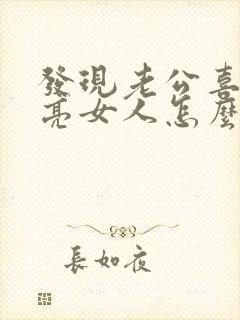 發現老公喜
亮女人怎麼
長如夜